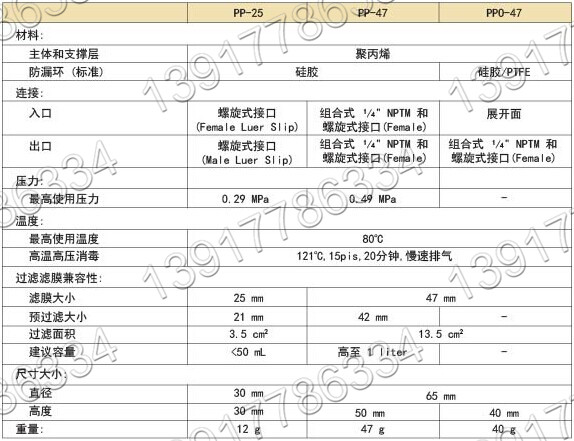 PP-25 PP-47 PPO-47
材料:
主体和支撑层 聚丙烯
防漏环 (标准) 硅胶 硅胶/PTFE
连接:
入口 螺旋式接口 组合式 ¼" NPTM 和 展开面
(Female Luer Slip) 螺旋式接口(Female)
出口 螺旋式接口 组合式 ¼" NPTM 和 组合式 ¼" NPTM 和
(Male Luer Slip) 螺旋式接口(Female) 螺旋式接口(Female)
压力:
最高使用压力 0.29 MPa 0.49 MPa -
温度:
最高使用温度 80℃
高温高压消毒 121℃,15pis,20分钟,慢速排气
过滤滤膜兼容性:
滤膜大小 25 mm 47 mm
预过滤大小 21 mm 42 mm -
过滤面积 3.5 cm² 13.5 cm²
建议容量 <50 mL 高至 1 liter -
尺寸大小:
直径 30 mm 65 mm
高度 30 mm 50 mm 40 mm
重量: 12 g 47 g 40 g
13917786334
13917786334
13917786334
13917786334